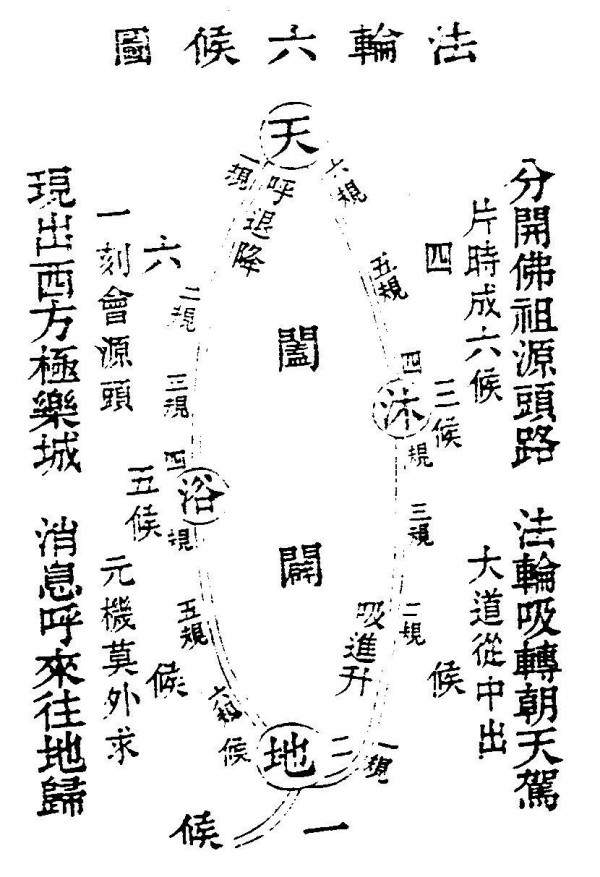 法輪六候圖
分開佛祖源頭路 法輪吸轉朝天駕
片時成六候 大道從中出
天
六規
五規
四
沐
四規
三候
三規
二規
吸進升
候
一規
二
地
候
一候
闔
闢
呼退降
一規
二規
三規
四規
浴
五規
六規
六
五候
候
一刻會源頭 元機莫外求
現出西方極樂城 消息呼來往地歸